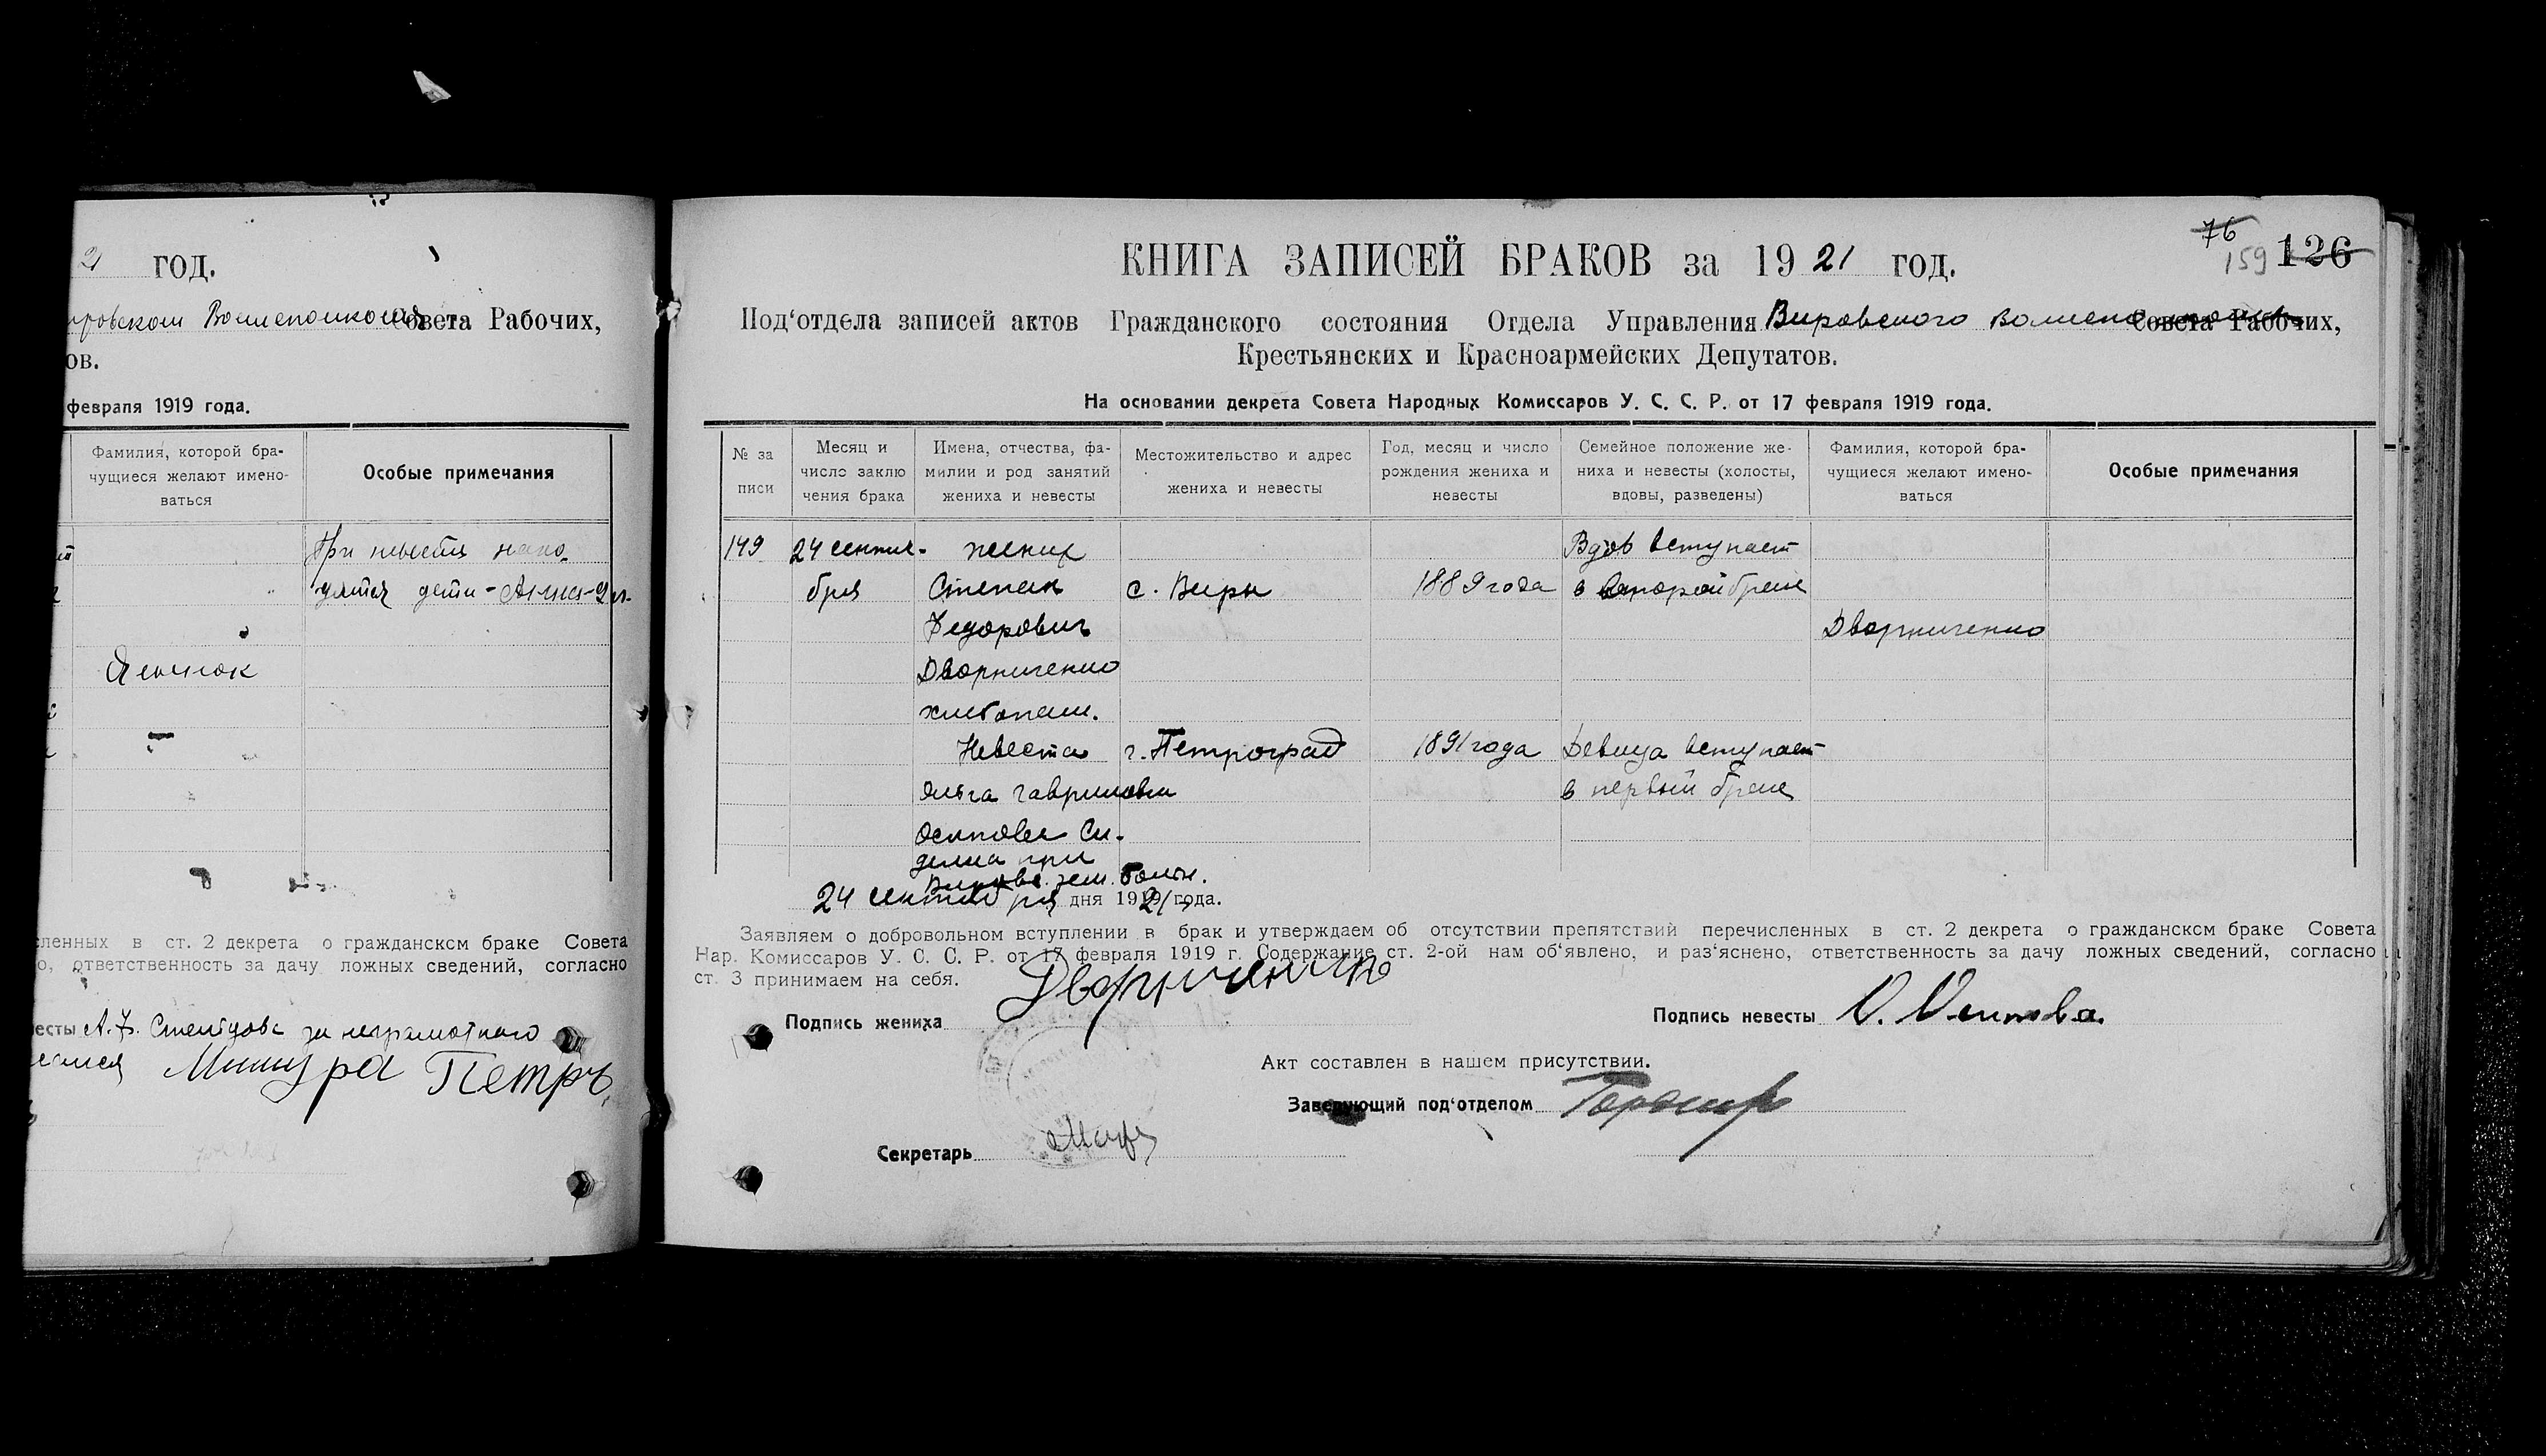 21 год.
Совета Рабочих,
ов.
февраля 1919 года.
Фамилия, которой бра-
чущиеся желают имено-
ваться
Особые примечания
При невесте нахо-
дятся дети-
сленных в ст. 2 декрета о гражданском браке Совета
о, ответственность за дачу ложных сведений, согласно
есты А. Ф. за неграмотного
Петръ
76
159 126
КНИГА ЗАПИСЕЙ БРАКОВ за 1921 год.
Под‘отдела записей актов Гражданского состояния Отдела Управления Вировского Совета Рабочих,
Крестьянских и Красноармейских Депутатов.
На основании декрета Совета Народных Комиссаров У. С. С. Р. от 17 февраля 1919 года.
№ за
писи
Месяц и
число заклю
чения брака
Имена, отчества, фа-
милии и род занятий
жениха и невесты
Местожительство и адрес
жениха и невесты
Год, месяц и число
рождения жениха и
невесты
Семейное положение же-
ниха и невесты (холосты,
вдовы, разведены)
Фамилия, которой бра-
чущиеся желают имено-
ваться
Особые примечания
149 24 сентя- жених Вдов вступает
бря Степан с. Виры 1889 года в второй брак
Федорович Дворниченко
Дворниченко
хлебопаш.
Невеста г. Петроград 1891 года Девица вступает
Ольга Гавриловна в первый брак
Осипова Си-
делка при
Вировс. зем. больн.
24 сентября дня 1921 года.
Заявляем о добровольном вступлении в брак и утверждаем об отсутствии препятствий перечисленных в ст. 2 декрета о гражданском браке Совета
Нар. Комиссаров У. С. С. Р. от 17 февраля 1919 г. Содержание ст. 2-ой нам об‘явлено, и раз‘яснено, ответственность за дачу ложных сведений, согласно
ст. 3 принимаем на себя.
Подпись жениха Дворниченко
Подпись невесты О. Осипова.
Акт составлен в нашем присутствии.
Заведующий под‘отделом
Секретарь